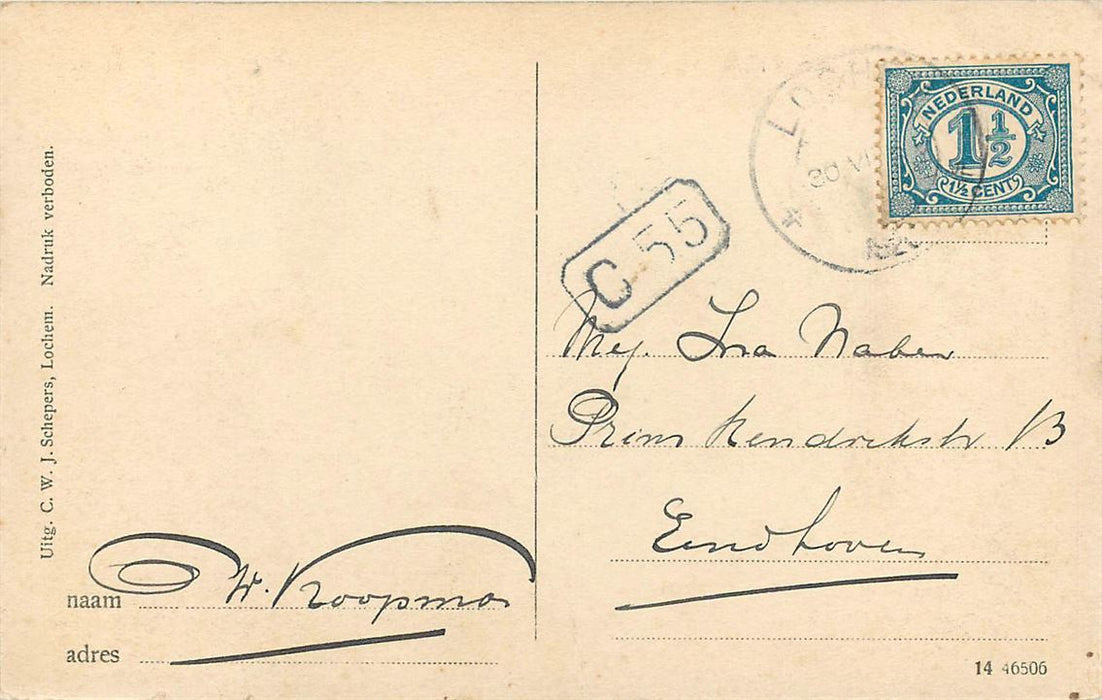 Uitg. C. W. J. Schepers, Lochem. Nadruk verboden.
NEDERLAND
1 1/2
1½ CENT
30 VI
C 55
Mej. Ina Naber
Prins Hendrikstr 13
Eindhoven
naam W. Koopmans
adres
14 46506